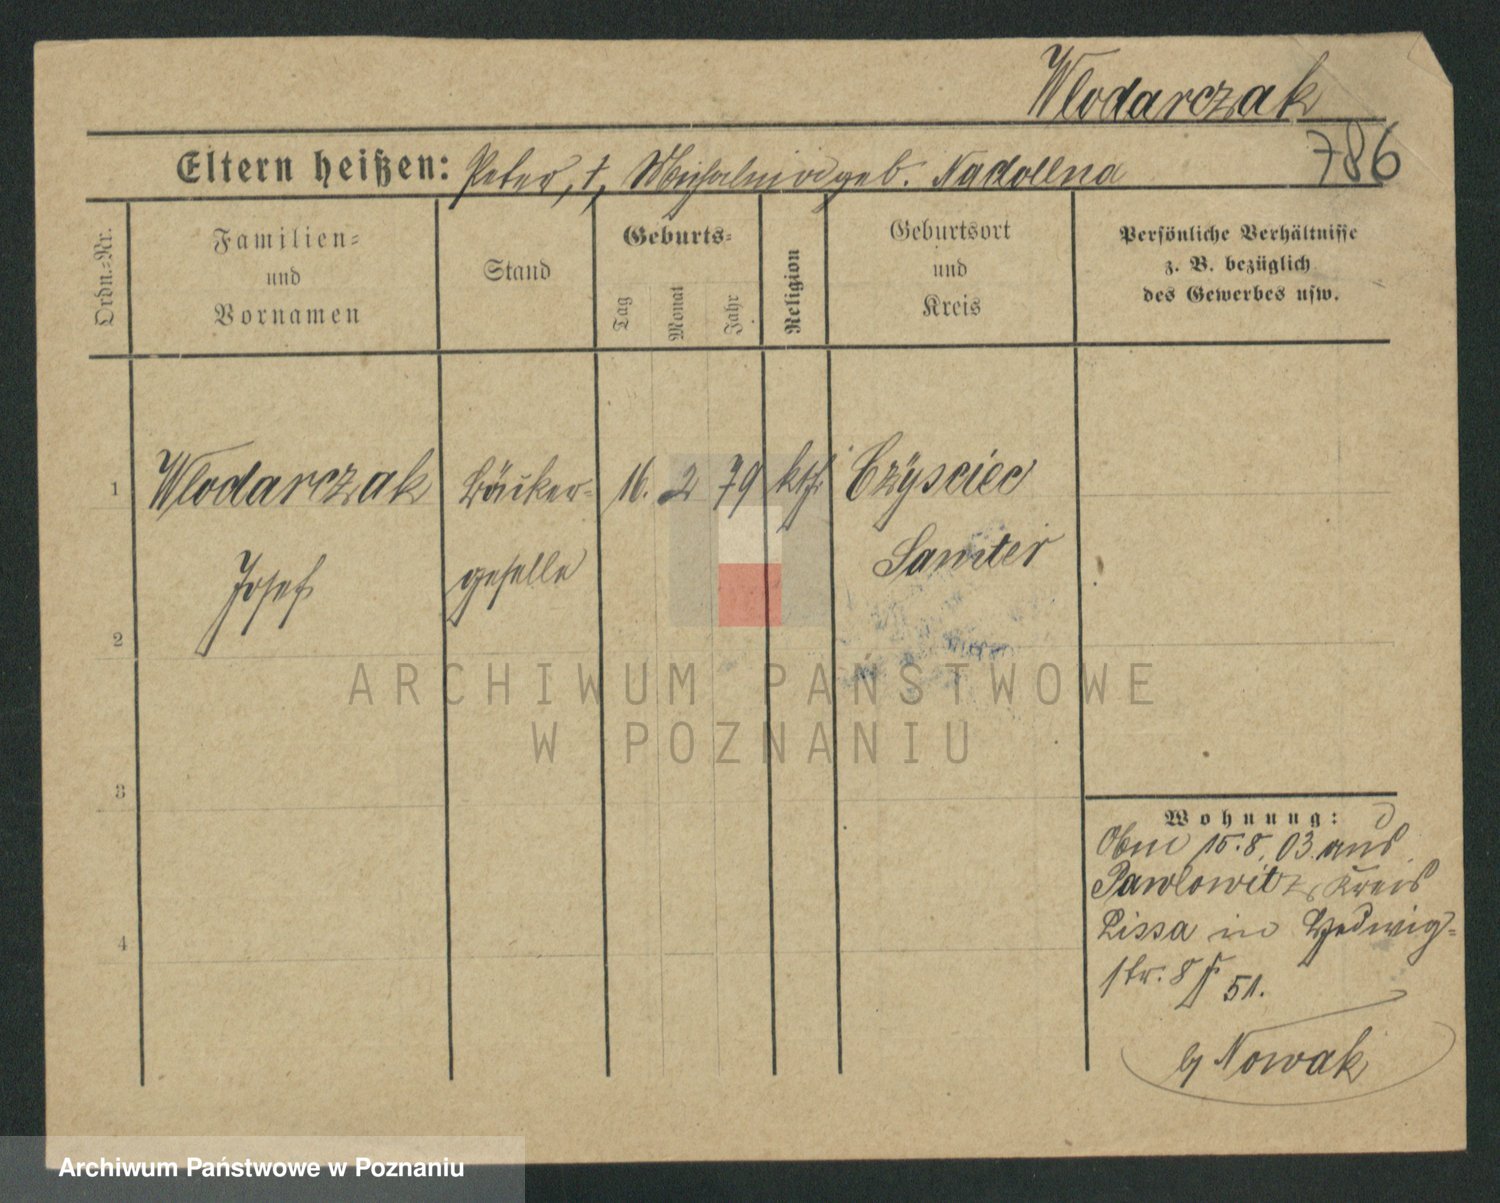 Wlodarczak
786
Eltern heißen: Peter, †, Michalina geb. Nadollna
Ordn.-Nr.
Familien-
und
Vornamen
Stand
Geburts-
Tag
Monat
Jahr
Religion
Geburtsort
und
Kreis
Persönliche Verhältnisse
z. B. bezüglich
des Gewerbes usw.
1
Wlodarczak
Bäcker-
16. 2 79
kth.
Czysciec
Josef
geselle
Samter
2
3
4
Wohnung:
15.8.03. aus
Pawlowitz, Kreis
Lissa in Hedwig-
str. 8 51.
b/ Nowak
ARCHIWUM PAŃSTWOWE
W POZNANIU
Archiwum Państwowe w Poznaniu